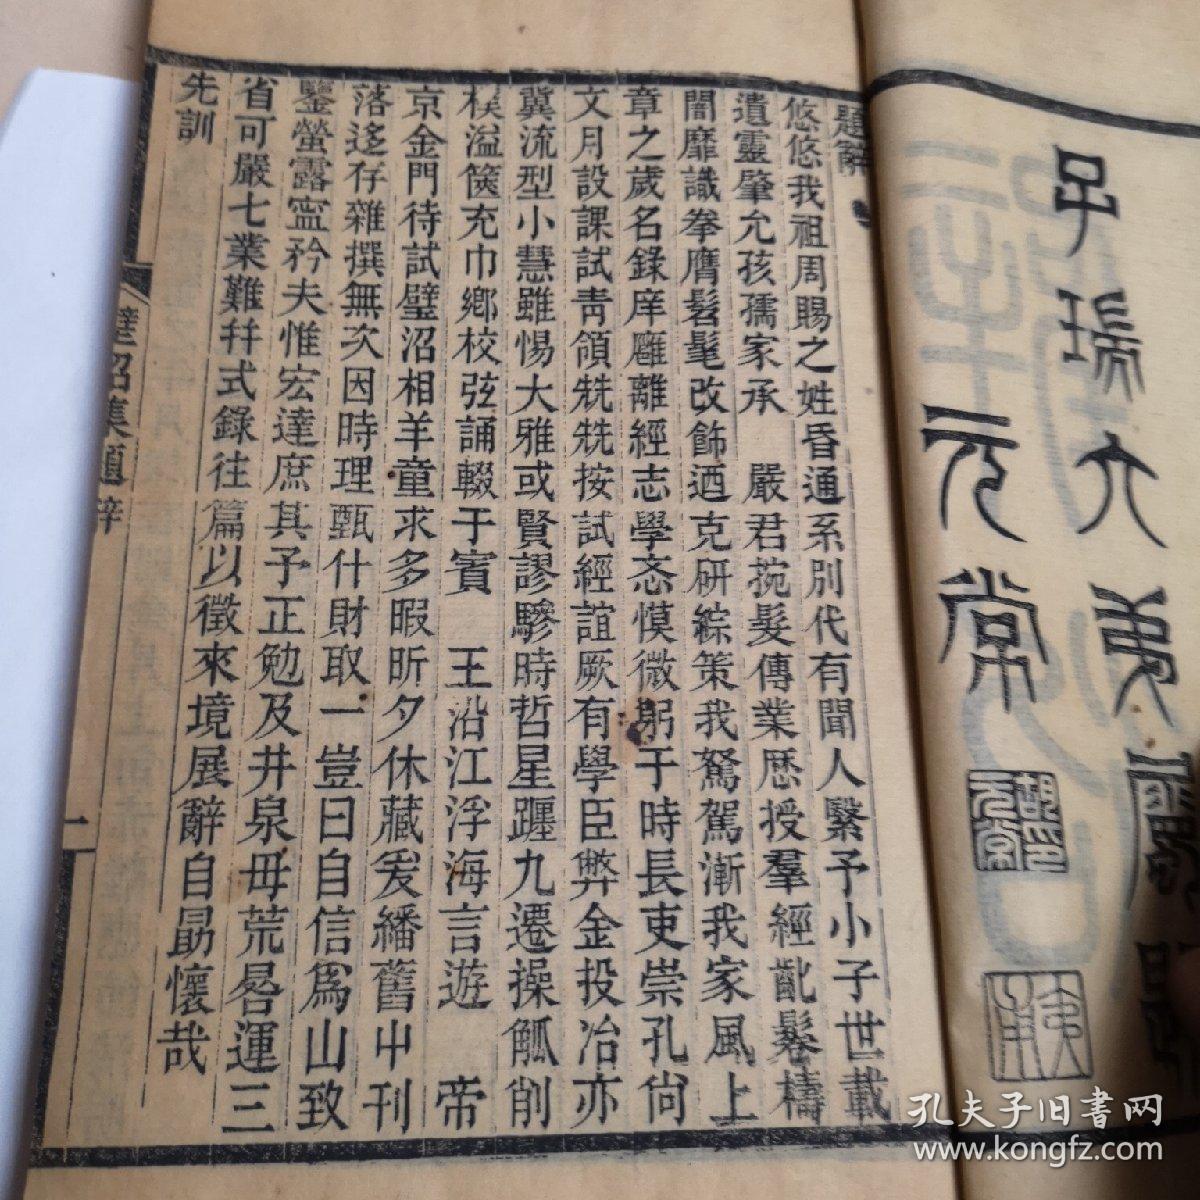 子瑞大弟屬題
元常
題辭
悠悠我祖周賜之姓昏通系別代有聞人繄予小子世載
遺靈肇允孩孺家承　嚴君捥髮傳業歷授羣經齔鬈檮
闇靡識拳膺髫髦改飾迺克研綜策我駑駕漸我家風上
章之歲名錄庠雝離經志學忞慔微躬于時長吏崇孔尙
文月設課試靑領兟兟按試經誼厥有學臣弊金投冶亦
冀流型小慧雖惕大雅或賢謬驂時哲星躔九遷操觚削
椟溢篋充巾鄉校弦誦輟于賓　王沿江浮海言遊　帝
京金門待試璧沼相羊童求多暇昕夕休藏爰繙舊中刊
落迻存雜撰無次因時理甄什財取一豈曰自信爲山致
鑒螢露寍矜夫惟宏達庶其予正勉及井泉毋荒晷運三
省可嚴七業難幷式錄往篇以徵來境展辭自勗懷哉
先訓
璧沼集題辭
一
孔夫子旧书网
www.kongfz.com